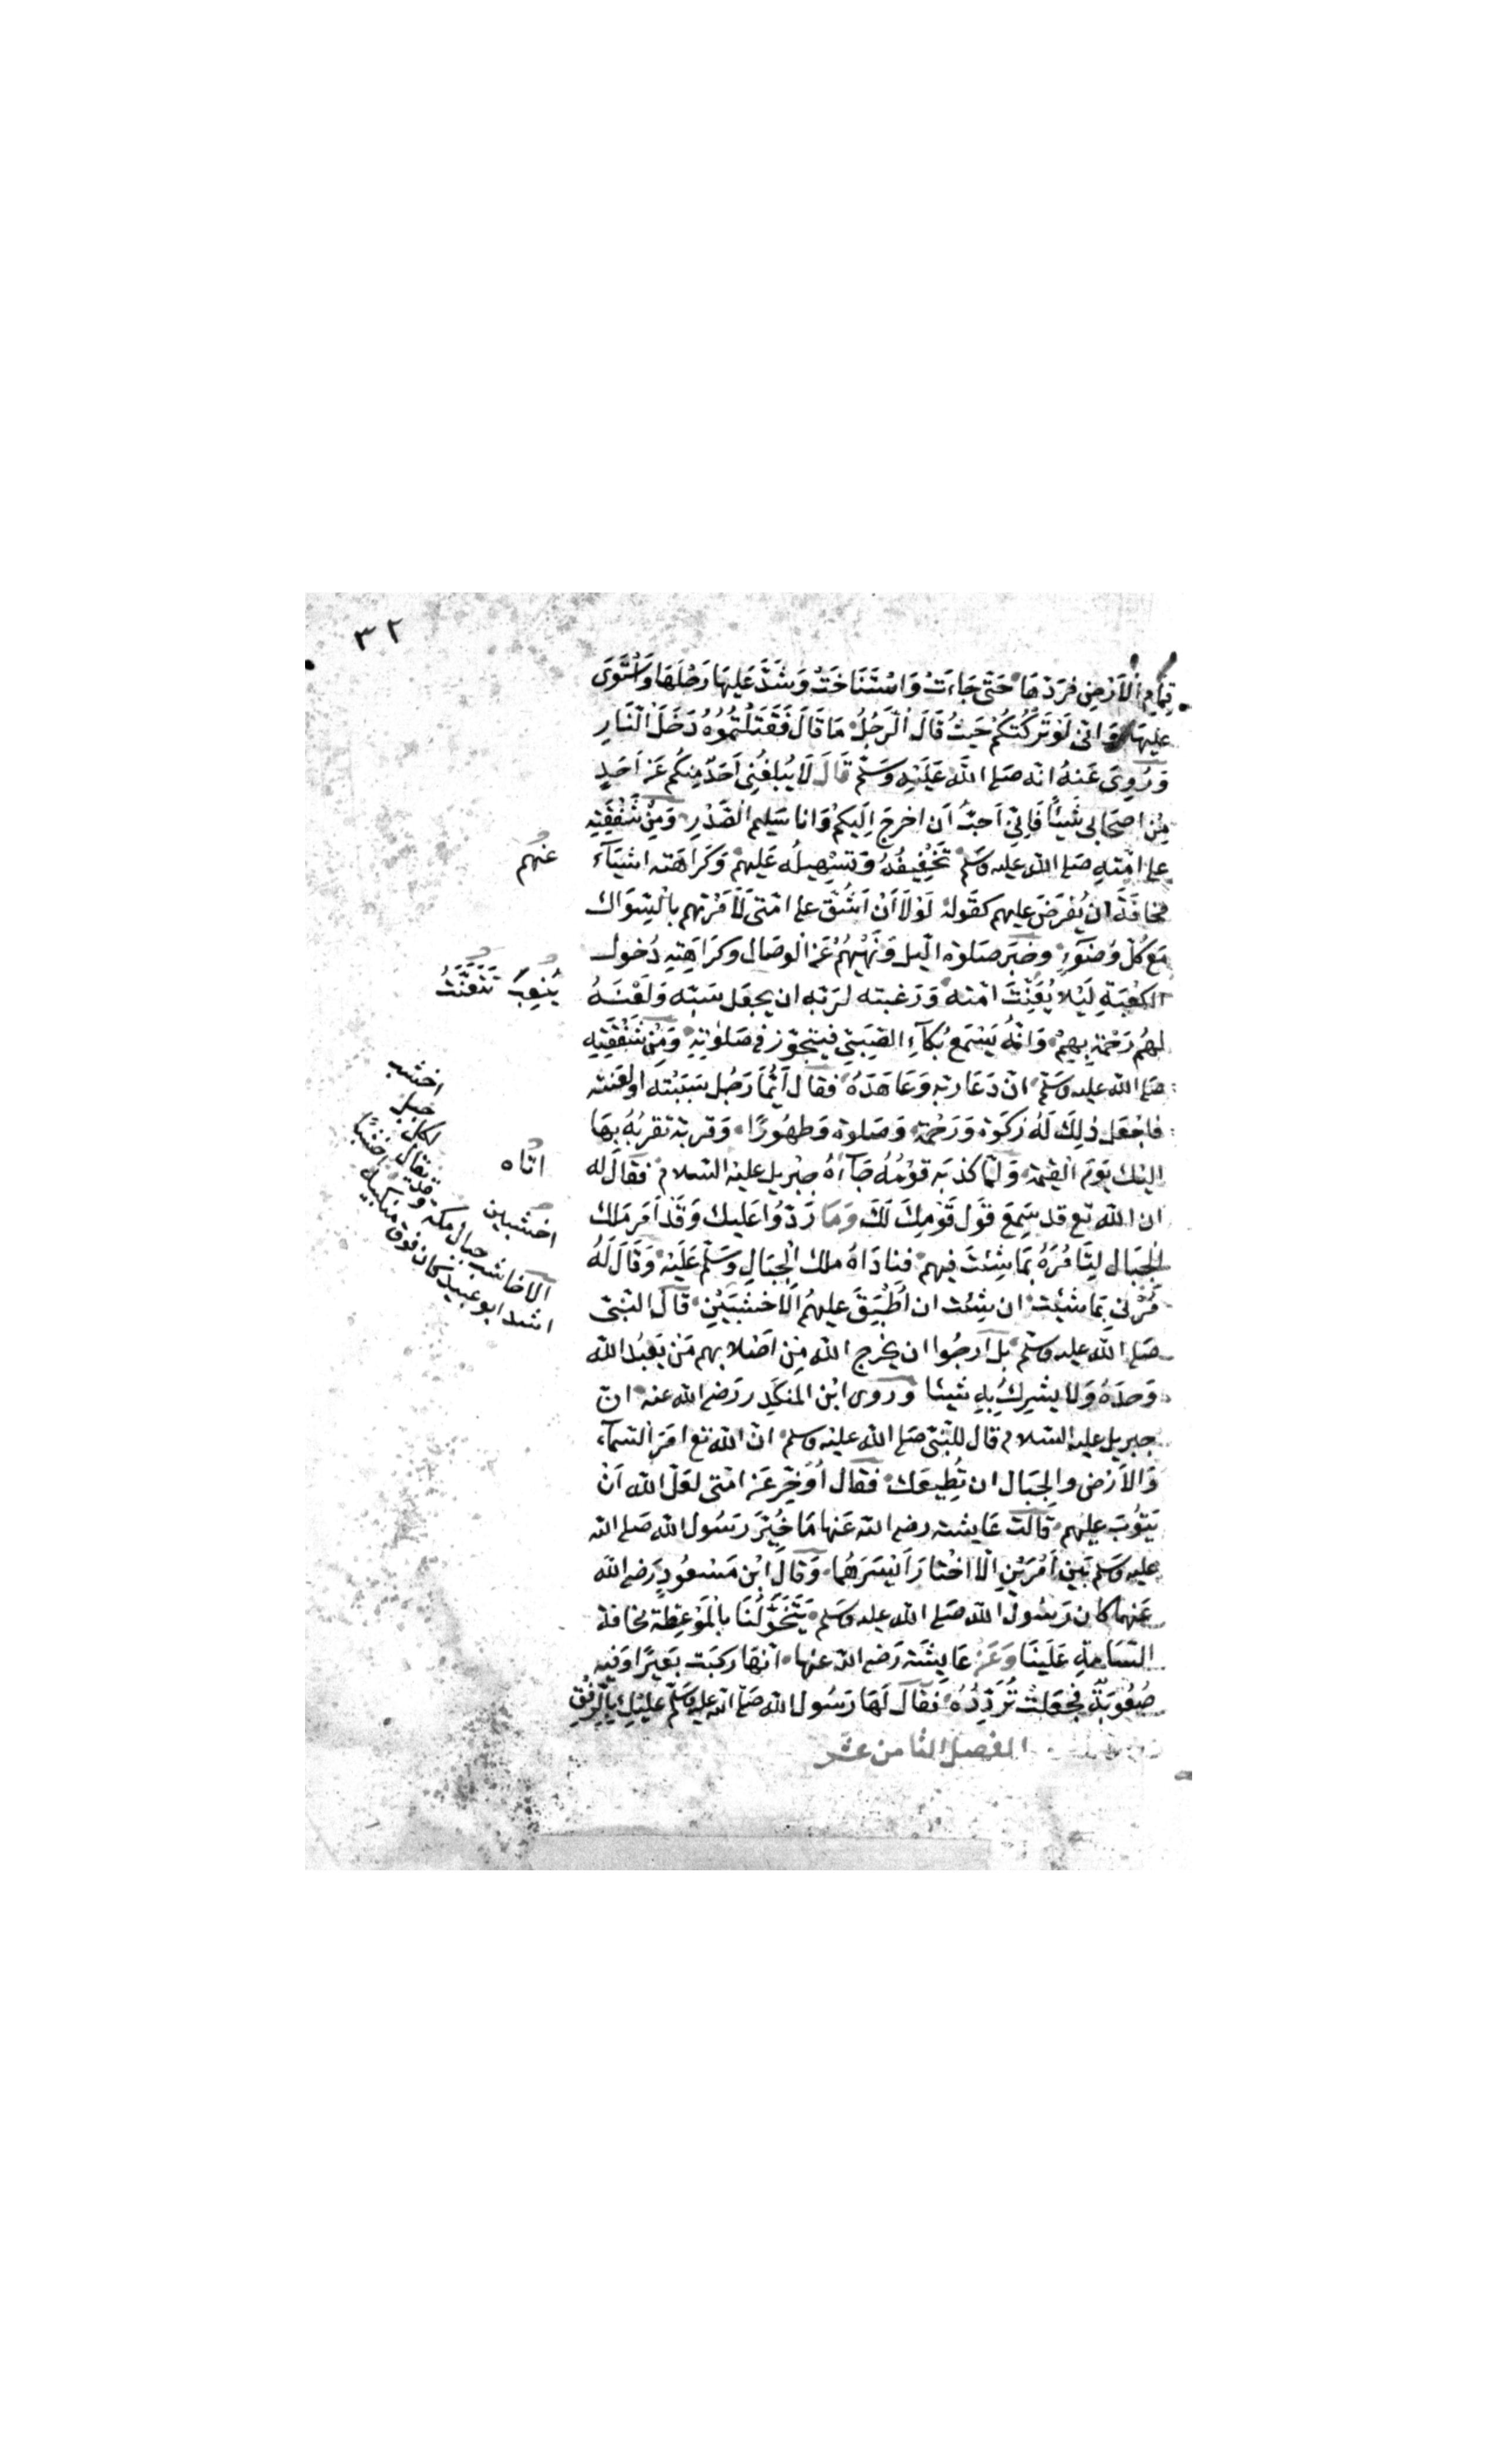 ٣٢
قِمَامِ الْاَرْضِ فَرَدَّهَا حَتّٰى جَاءَتْ وَاسْتَنَاخَتْ وَشَدَّ عَلَيْهَا رَحْلَهَا وَاسْتَوٰى
عليهَا وَانّى لَوْ تَرَكْتُكُمْ حَيْثُ قَالَ الرَّجُلُ مَا قَالَ فَقَتَلْتُمُوْهُ دَخَلَ النَّارِ
وَرُوِىَ عَنهُ انه صَلى اللّه عَلَيْهِ وَسَلّم قَالَ لَا يُبلغُنِى اَحَدٌ مِنكُم عَن اَحَدٍ
مِن اصحَابى شَيئًا فَاِنّى اَحبُّ اَن اخرجَ اِلَيكُم وَانا سَليم الصَّدْرِ وَمِنْ شَفْقَتِه
على امّتهِ صَلى اللّه عليه وسَلم تَخْفِيفُهُ وَتسْهِيلُه عَليهمْ وَكَرَاهَته اشيَآءَ
مخَافَةَ ان يُفرَضَ عليهم كقَولهْ لَوْلَا اَنْ اَشُقّ على امّتى لَاَمَرْتهم بالْسِّوَاك
مَعَ كُلّ وُضُوءٍ وَخبَر صَلوٰة الّيل وَنَهْيُهُمْ عَن الْوصَال وَكرَاهِيَتِه دُخول
الكعْبَةِ لَيْلا يُعَنِّتَ امّته وَرَغبته لرَبّه ان يجعَل سَبّه وَلَعْنَهُ
لهُم رَحْمَة بِهِمْ وَانّهُ يَسْمَع بُكآءِ الصَّبِىّ فيتجوّز فى صَلوٰتهِ وَمِنْ شَفْقَتِه
صَلى اللّه عليه وسَلّم انْ دَعَا ربّه وَعَاهَدَهُ فقال اَيُّمَا رَجُلٍ سَبَبْتهَ اولعَنته
فاجْعَل ذٰلِكَ لَهُ زَكوٰة وَرَحْمَة وَصَلوٰة وَطهُورًا وَقربة تقرّبُهُ بِهَا
اليْك يَومَ القيٰمة وَلَمّا كذبَه قَوْمُهُ جَآءَهُ جبْريل عليه السّلام فقالَ له
ان اللّه تع قد سَمِعَ قَول قَوْمِكَ لَكَ وَمَا رَدّوُا عَليك وَقَدْ اَمَر مَلك
الجِبَال لِتَأمُرَهُ بمَا شِئتَ فيهم فنادَاهُ ملك الْجبَالِ وَسَلّم عَلَيه وَقَالَ لَهُ
مُرْنى بمَا شئت ان شِئت ان اُطْبِقَ عليهُم الْاَخشَبَيْنِ قَالَ النّبى
صَلى اللّه عليه وسَلّم بَل اَرجُوا ان يخرج اللّه مِن اصْلابهم مَن يَعبُد اللّه
وَحدَهُ وَلا يشرِكُ بهِ شيئا وَرَوى ابْن المنكَدِر رَضى اللّه عنه ان
جبريل عليه السّلام قال للنّبىّ صَلى اللّه عليه وسلم انّ اللّه تع امَرَ السّمآء
وَالاَرْضَ وَالجِبَال ان تُطِيعَك فقَال اُؤَخّر عَن امّتى لعَلّ اللّه اَنْ
يَتوُبَ عليهم قَالت عَايشة رضى اللّه عَنها مَا خُيّرَ رَسُول اللّه صَلى اللّه
عليه وسَلم بَين اَمْرَيْنِ الّا اخْتارَ اَيْسَرَهُمَا وَقالَ ابْن مَسْعُودٍ رَضى اللّه
عَنهما كَان رَسُول اللّه صَلى اللّه عليه وسَلم يَتَخَوَّلُنَا بالْمَوْعِظَة مخافة
السَّامَةِ عَلَينَا وَعَن عَايشَة رَضى اللّه عنها انّهَا ركبَت بَعيرًا وَفيه
صُعُوبَةٌ فجعَلت تُرَدِّدُهُ فقَالَ لَهَا رَسُول اللّه صَلى اللّه عليه وسَلّم عَليكِ بِالرِّفْقِ
الفصل الثامن عشر
عنهم
يُتْعِبَ تَتَعَنَّتَ
اتاه
اخشبين
اخشب
جبل
لكل
وقد يقال
الاخاشب جبال مكة
انشد ابو عبيد كان فوق منكبيه اخشبا